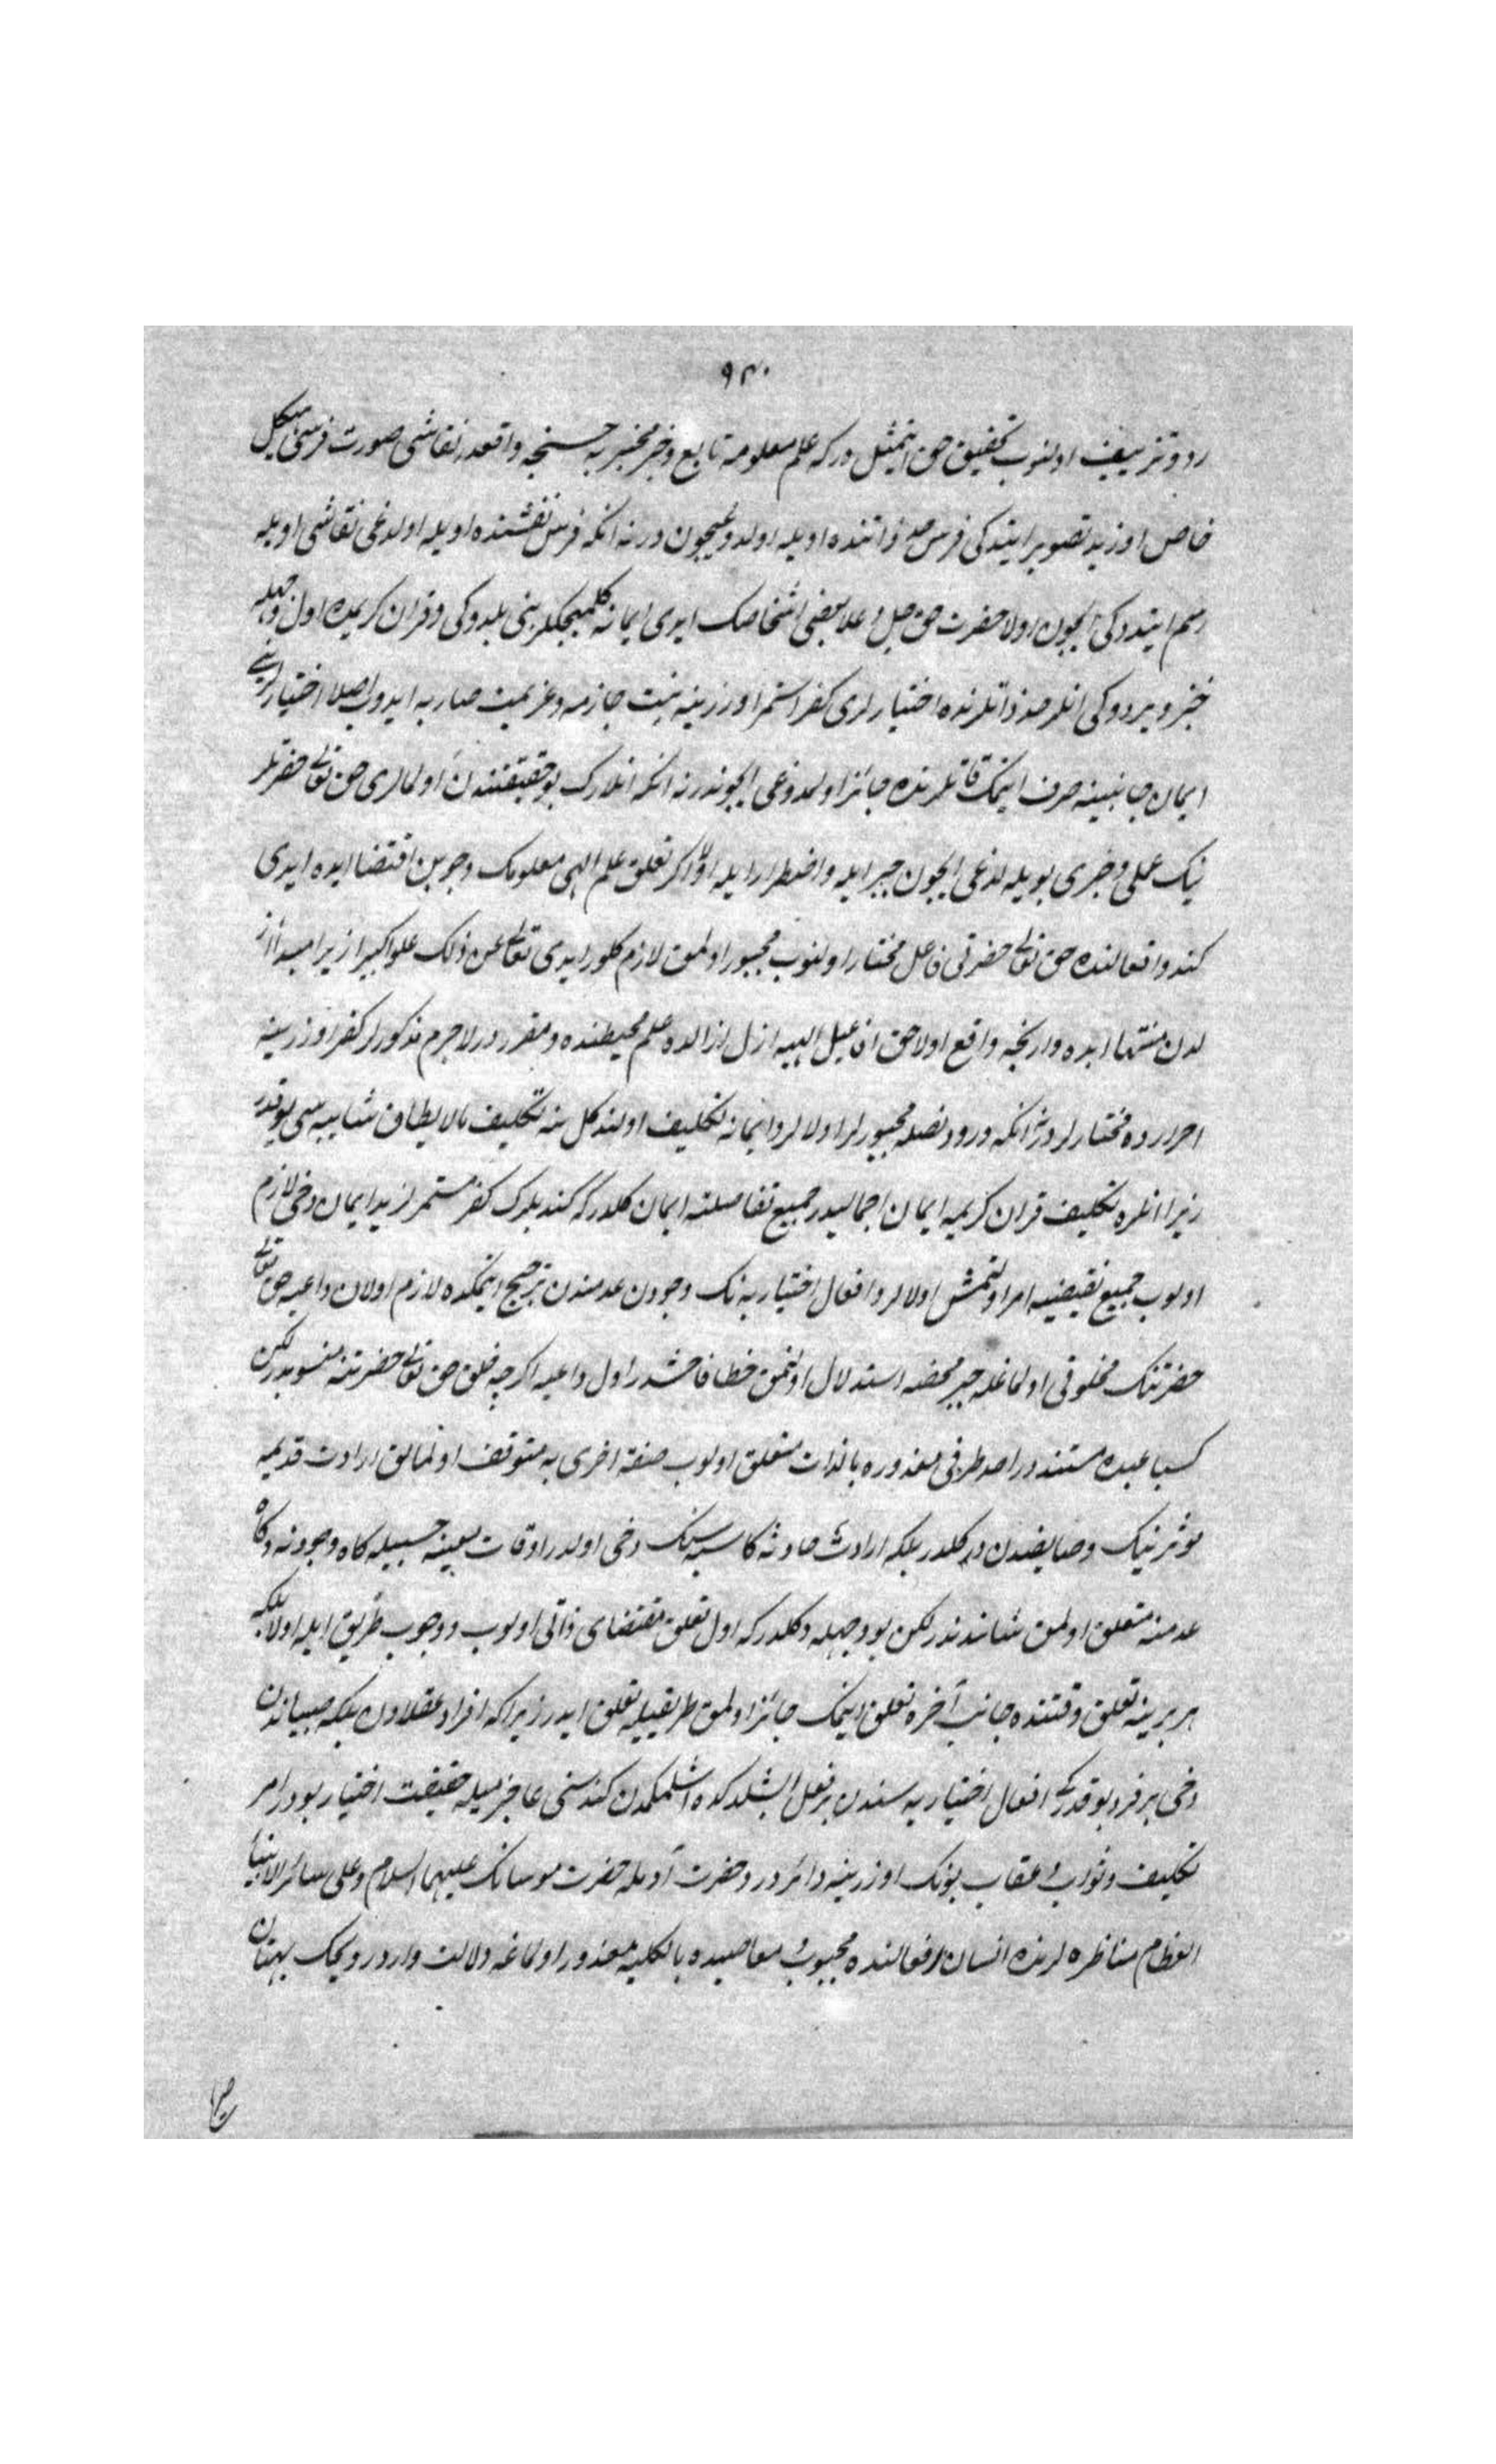 ٩٣٠
رد وتزييف اولنوب تحقيق حق ايتمشلدر كه علم معلومه تابع وخبر مخبر به حسبنجه واقعدر نقاشى صورت فرسى شكل
خاص اوزره تصوير ايتدكى فرس ذاتنده اويله اولدوغيچون در نه انكه فرس نفسنده اويله اولدغى نقاشى اويله
رسم ايتدوكى ايچون اولا حضرت حق جل وعلا بعض اشخاصك ابدى ايمانه كلميجكلرينى بلدوكى وقران كريمده اول وجهله
خبر ويردوكى انلر حد ذاتلرنده اختيارلرى كفر استمرار اوزرينه نيت جازمه وعزيمت صارمه ايدوب اصلا اختيارلرينى
ايمان جانبينه صرف ايتمك قاتلرنده جائز اولمدوغى ايچوندر نه انكه انلرك بو حقيقتدن اولمالرى حق تعالى حضرتلر
ينك علمى وخبرى بويله اولدغى ايچون جبر ايله واضطرار ايله اولا اكر تعلق علم الهى معلومك وجوبن اقتضا ايده ايدى
كندو افعالنده حق تعالى حضرتى فاعل مختار اولميوب مجبور اولمق لازم كلور ايدى تعالى عن ذلك علوا كبيرا زيرا مبداء از
لدن منتهاء ابده وارنجه واقع اولاجق افاعيل الهيه ازل ازالده علم محيطنده مقرردر لاجرم مذكورلر كفر اوزرينه
اصرارده مختارلردر نه انكه ورود نصله مجبورلر اولالر وايمانه تكليف اولندكلرينه تكليف مالا يطاق شايبه سى يوقدر
زيرا انلره تكليف قران كريمه ايمان اجماليدر جميع تفاصيلنه ايمان دكلدر كه كندولرك كفر مستمرلرينه ايمان دخى لازم
اولوب جميع نقيضينه امر اولنمش اولالر وافعال اختياريه نك وجودن عدمندن ترجيح ايتمكده لازم اولان داعيه حق تعالى
حضرتنك مخلوقى اولماغله جبر محضه استدلال اولنمق خطا فاحشدر اول داعيه اكرچه خلق حق تعالى حضرتنه منسوبدر لكن
كسبا عبده مستنددر احد طرفى مقدوره بالذات متعلق اولوب صفت اخرى يه متوقف اولمامق ارادت قديمه
مؤثره نيك وصايصندن دكلدر بلكه ارادت حادثه كاسبه نك دخى اولدر اوقات معينه حسبيله كاه وجودنه وكاه
عدمنه متعلق اولمق شانندندر لكن بو وجهله دكلدر كه اول تعلق مقتضاى ذاتى اولوب ووجوب طريق ايله اولا بلكه
هر برينه تعلق وقتنده جانب آخره تعلق ايتمك جائز اولمق طريقيله تعلق ايدر زيرا كه افراد عقلادن بلكه صبياندن
دخى هر فرد بو قدر كه افعال اختياريه سندن بر فعل ايشلدكده اشلمكدن كندوسنى عاجز بيله حقيقت اختيار بودر امر
تكليف وثواب وعقاب بونك اوزرينه دائردر وحضرت آدمله حضرت موسانك عليهما السلام وعلى سائر الانبياء
العظام مناظره لرنده انسان افعالنده مجبور ومعاصيده بالكليه معذور اولماغه دلالت واردر ديمك بهتان